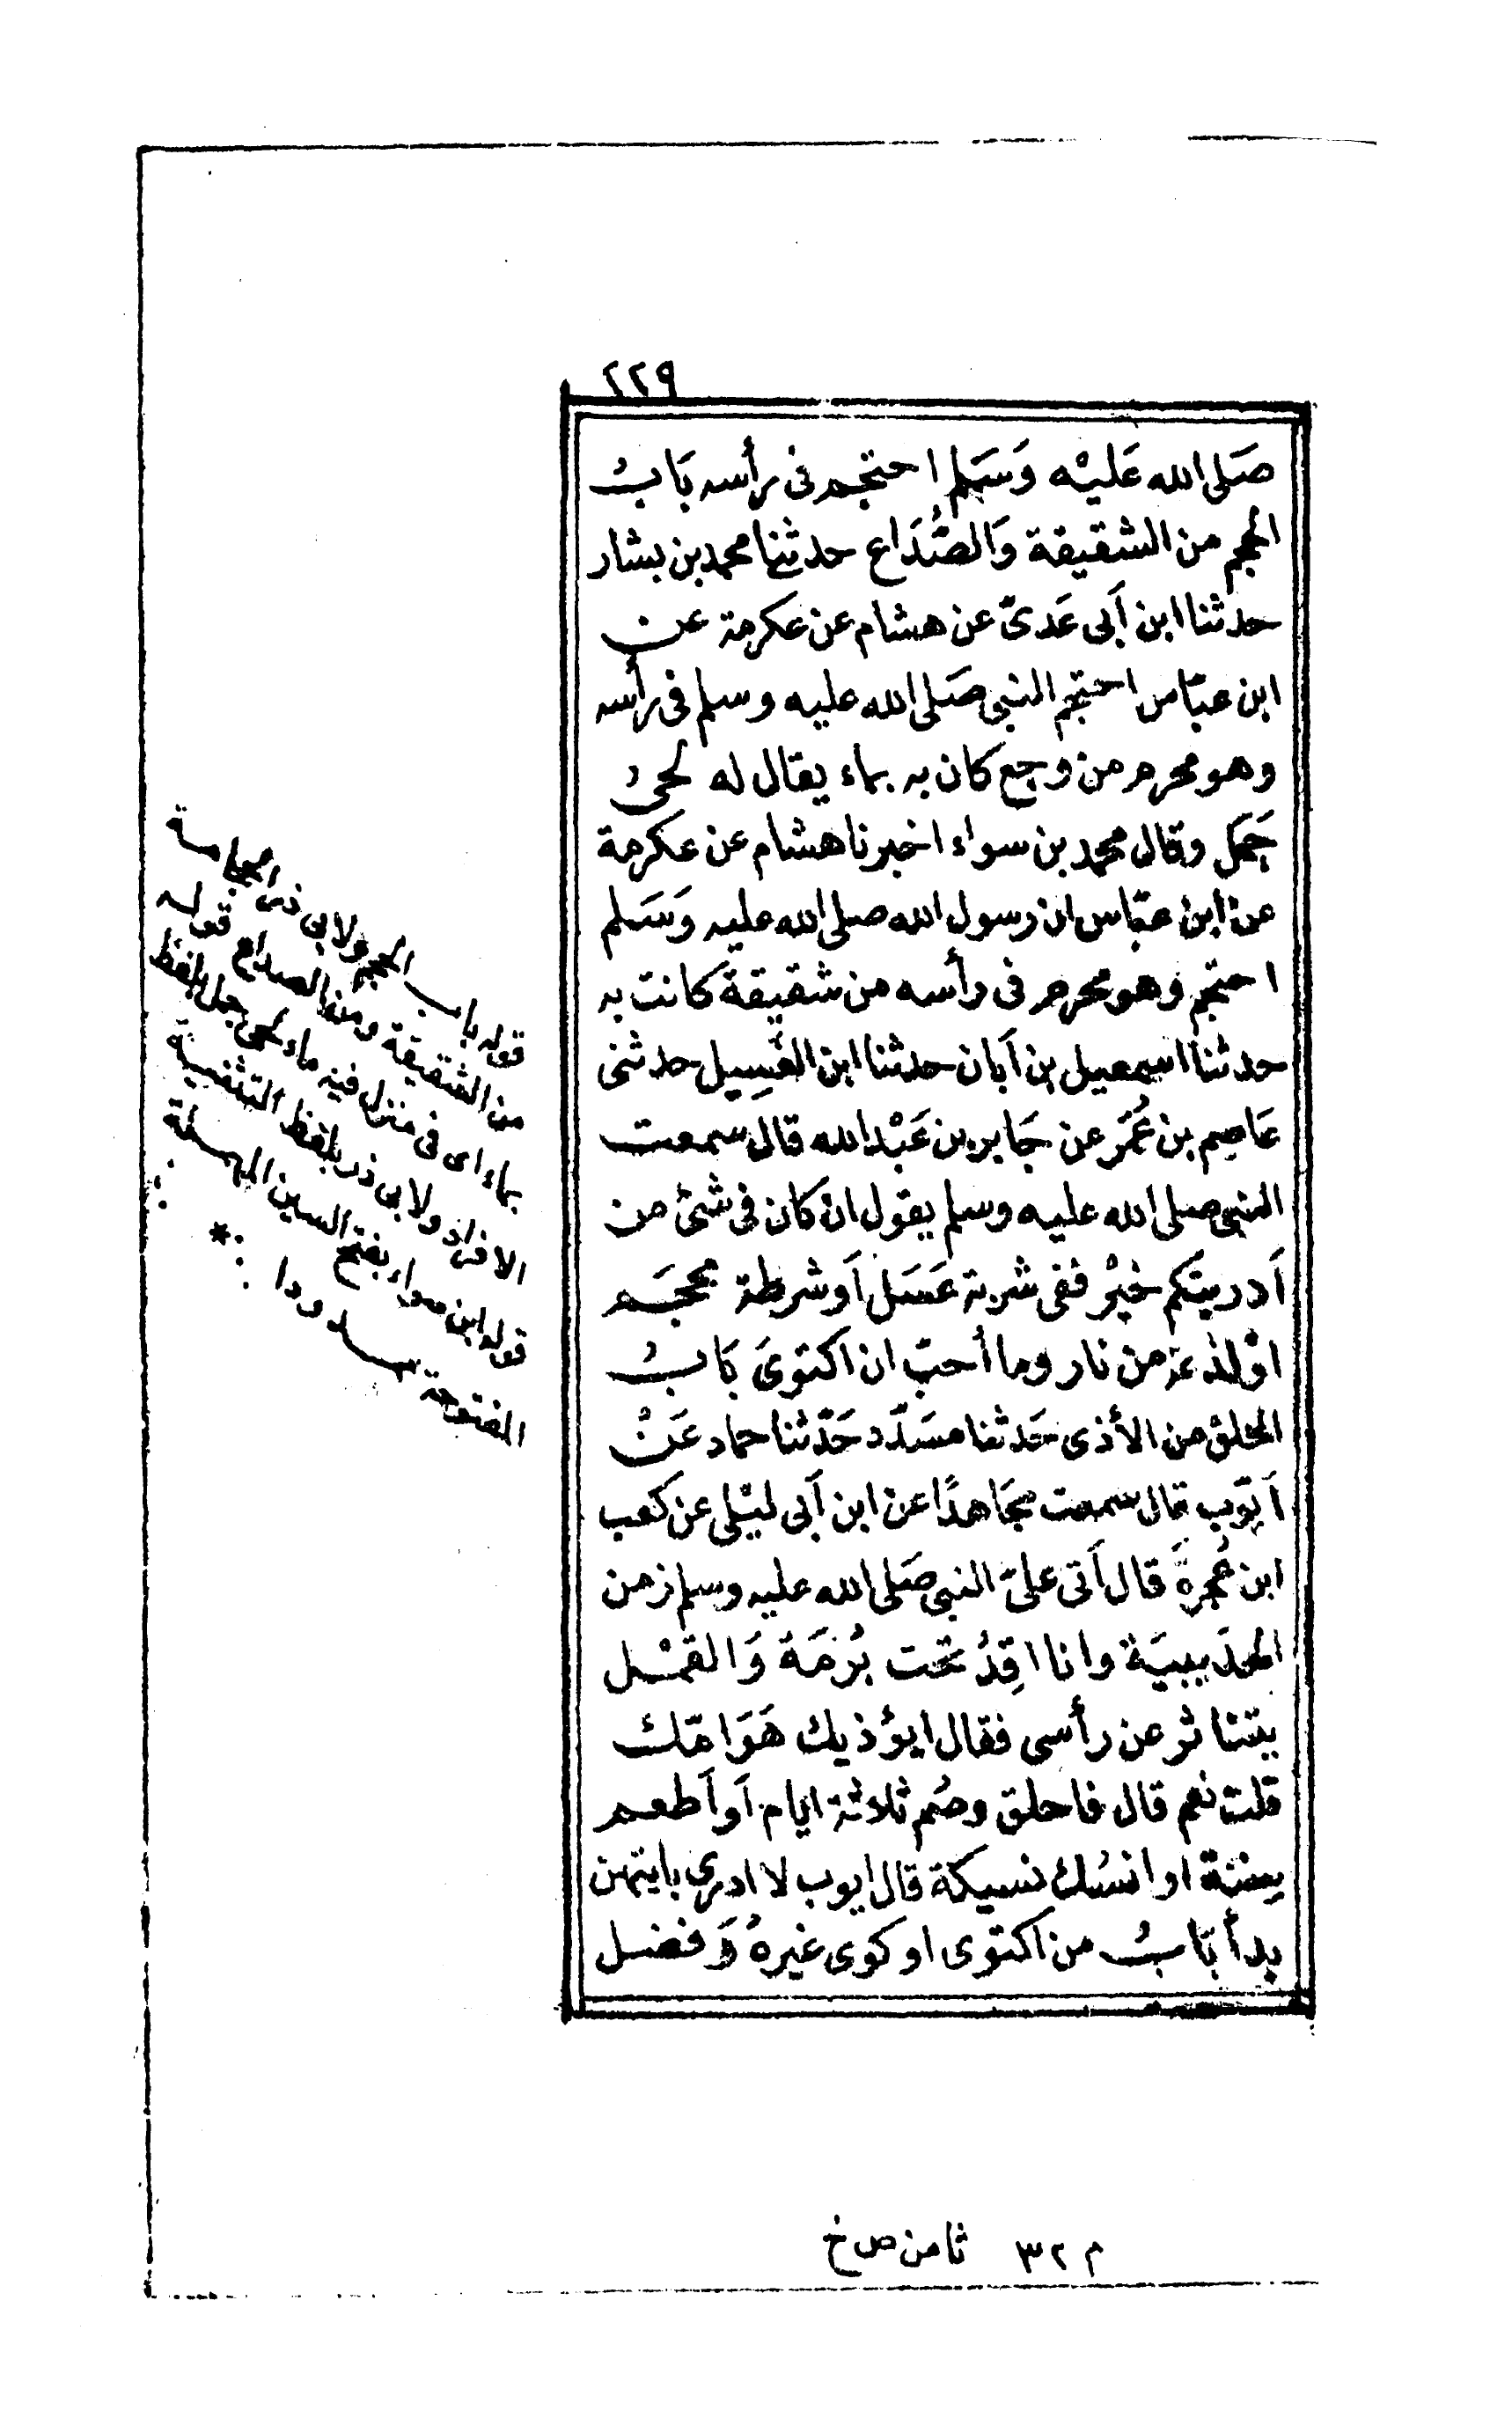 ٢٢٩
صَلى الله عَليْه وَسَلم احتجم فى رأسه بَابُ
الحجم من الشقيقة وَالصُّدَاع حدثنا محمد بن بشار
حدثنا ابن أبى عَدىّ عن هشام عن عكرمة عن
ابن عبّاس احتجم النبى صَلى الله عليه وسلم فى رأسه
وهو محرم من وجع كان به بماء يقال له لحىُ
جَمَل وقال محمد بن سواء اخبرنا هشام عن عكرمة
عن ابن عبّاس ان رسول الله صلى الله عليه وَسَلم
احتجم وهو محرم فى رأسه من شقيقة كانت به
حدثنا اسمعيل بن أبان حدثنا ابن الغَسِيل حدثنى
عَاصِم بن عُمَر عن جَابر بن عَبْد الله قال سمعت
النبى صلى الله عليه وسلم يقول ان كان فى شئ من
أدويتكم خيْر ففى شربة عَسَل أو شرطة محجَم
اوْ لذعة من نار وما أحبّ ان اكتوىَ بَابُ
الحلق من الأذى حَدثنا مسَدّد حَدّثنا حماد عَنْ
أيّوب قال سمعت مجَاهدًا عن ابن أبى ليْلى عن كعب
ابن عُجرةَ قال أتى علىّ النبى صَلى الله عليه وسلم زمن
الحُدَيبيَة وانا اوقِدُ تحت بُرمَة وَالقمْل
يتناثر عن رأسى فقال ايؤذيك هَوَامّك
قلت نعم قال فاحلق وصُم ثلاثة ايام أو أطعم
سِتة او انسُك نسيكة قال ايوب لا ادرى بايتهن
بدأ بَابُ من اكتوى او كوى غيرهُ وَفضل
قوله باب الحجم ولابى ذر الحجامة
من الشقيقة ومن الصداع قوله
بماء اى فى منزل فيه ماء لحى جمل بلفظ
الافراد ولابى ذر بلفظ التثنية
قوله ابن سواء بفتح السين المهملة
المفتوحة ممدودا
م ٣٢ ثامن ص خ